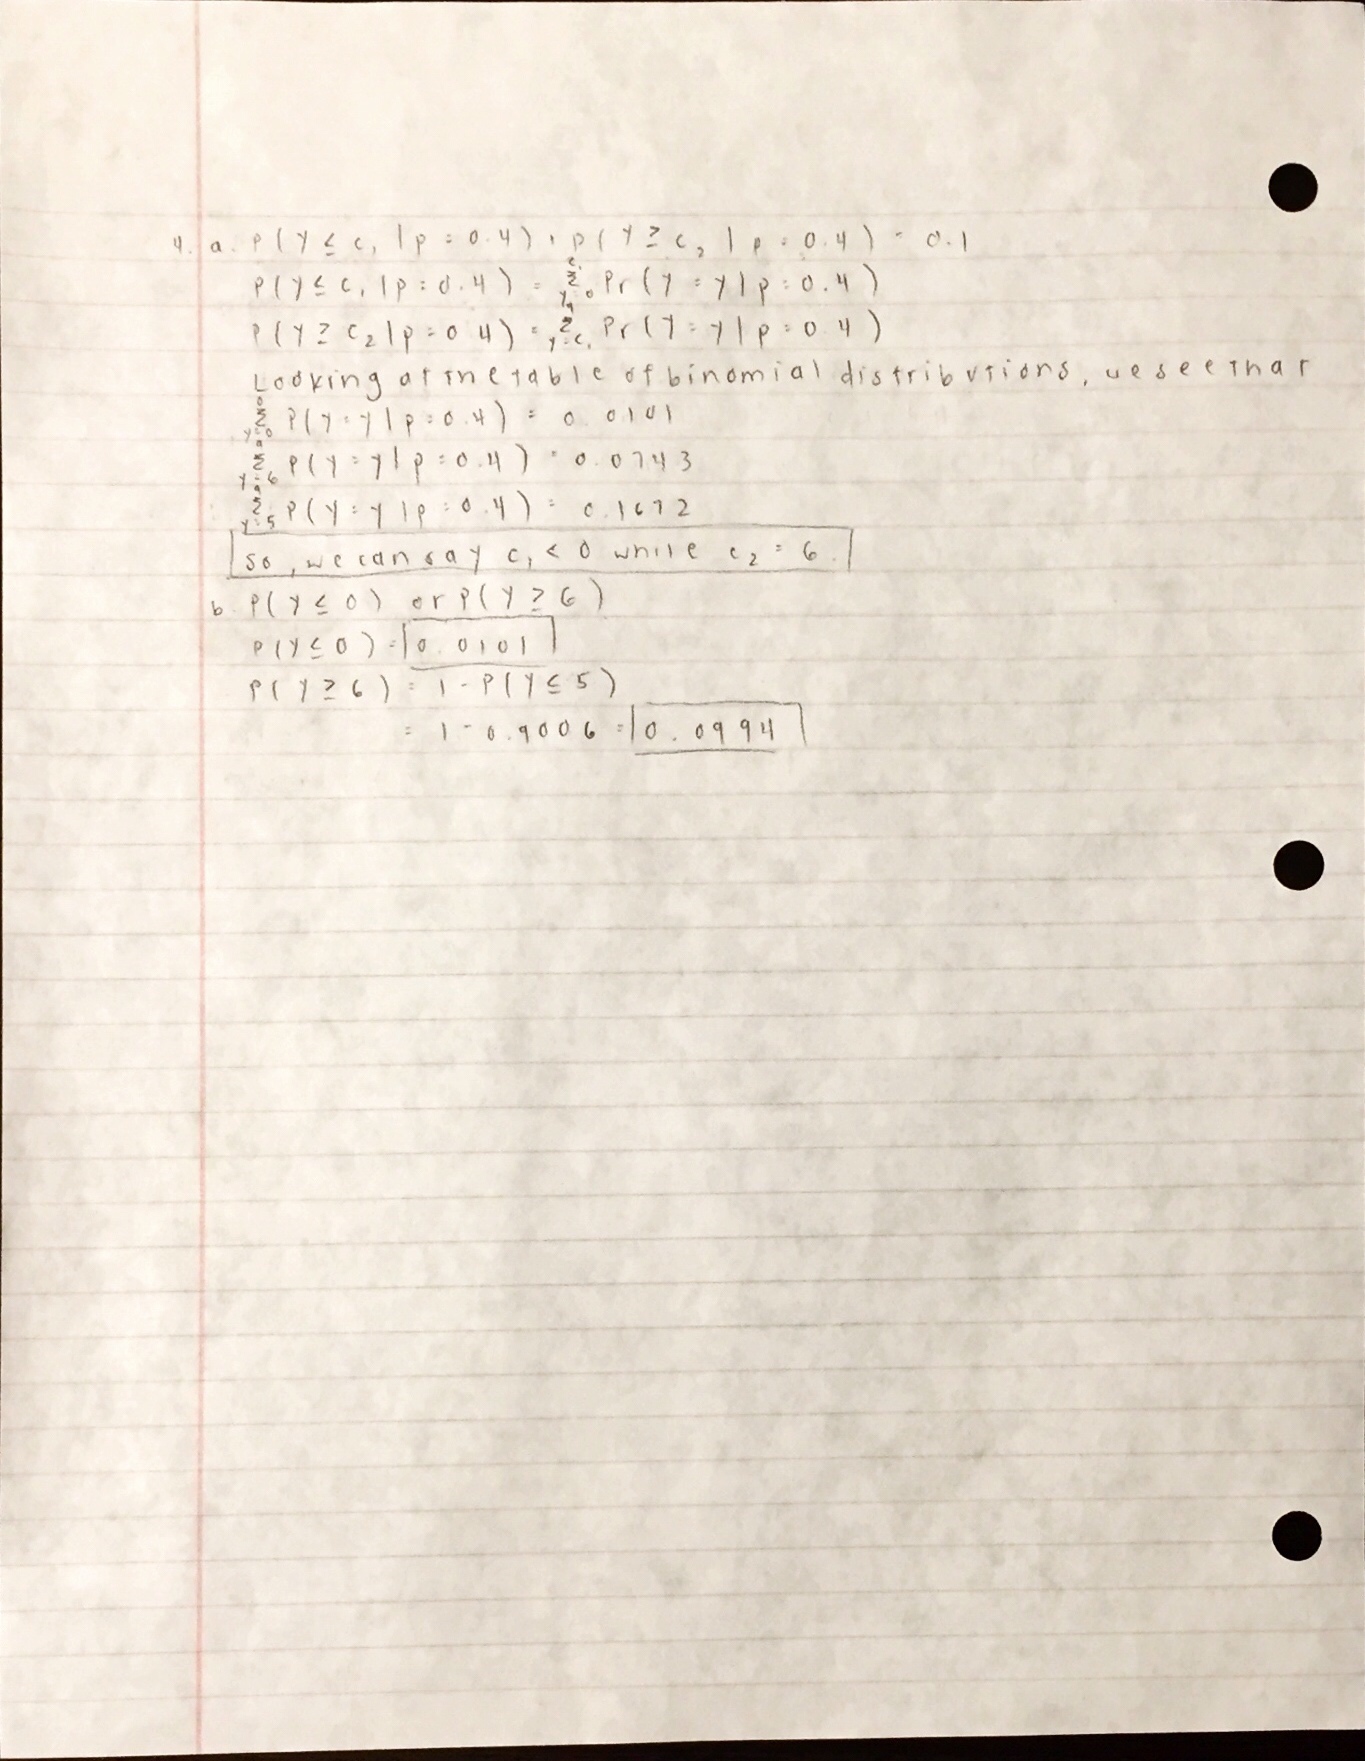 4. a. P(Y ≤ c₁ | p = 0.4) + P(Y ≥ c₂ | p = 0.4) = 0.1
P(Y ≤ c₁ | p = 0.4) = Σ_{y=0}^{c₁} Pr(Y = y | p = 0.4)
P(Y ≥ c₂ | p = 0.4) = Σ_{y=c₁}^{9} Pr(Y = y | p = 0.4)
Looking at the table of binomial distributions, we see that
Σ_{y=0}^{0} P(Y = y | p = 0.4) = 0.0101
Σ_{y=6}^{9} P(Y = y | p = 0.4) = 0.0743
Σ_{y=5}^{9} P(Y = y | p = 0.4) = 0.1672
So, we can say c₁ < 0 while c₂ = 6.
b. P(Y ≤ 0) or P(Y ≥ 6)
P(Y ≤ 0) = 0.0101
P(Y ≥ 6) = 1 - P(Y ≤ 5)
= 1 - 0.9006 = 0.0994